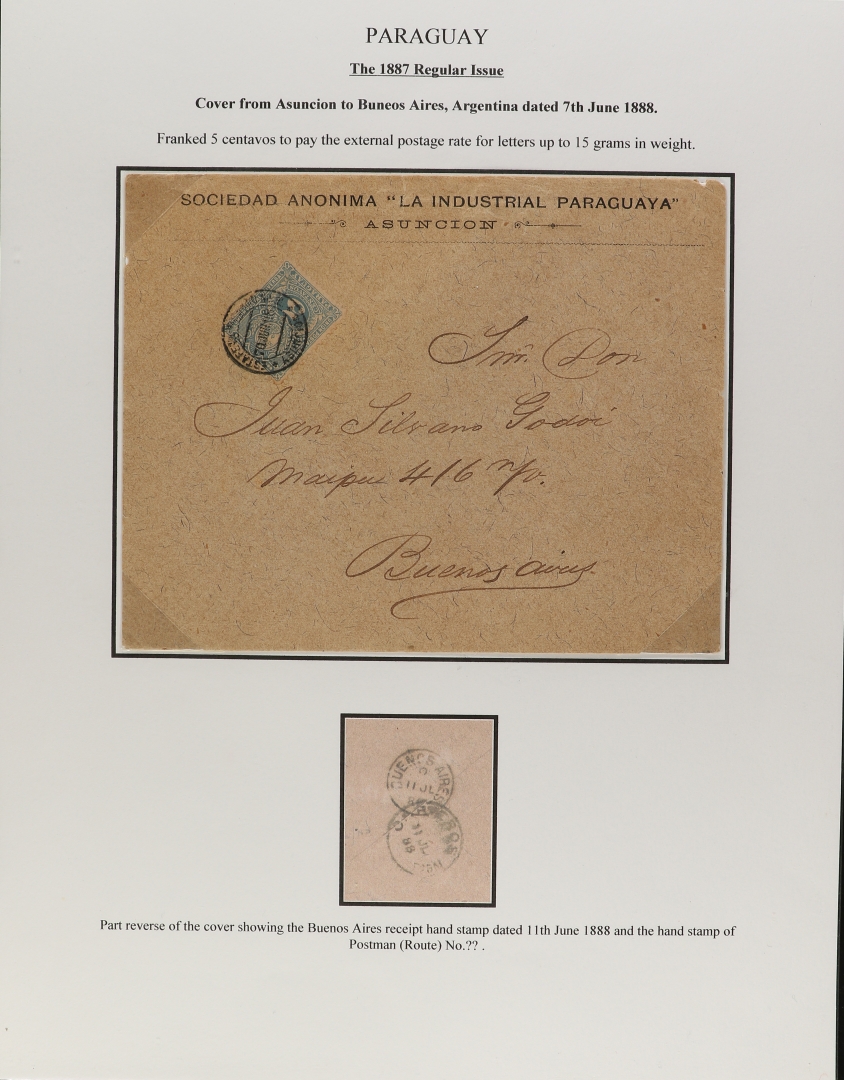 PARAGUAY
The 1887 Regular Issue
Cover from Asuncion to Buneos Aires, Argentina dated 7th June 1888.
Franked 5 centavos to pay the external postage rate for letters up to 15 grams in weight.
SOCIEDAD ANONIMA "LA INDUSTRIAL PARAGUAYA"
ASUNCION
Don
Juan Silvano Godoi
Maipu 416 n/v.
Buenos aires
BUENOS AIRES
11 JL
11 JL
88
Part reverse of the cover showing the Buenos Aires receipt hand stamp dated 11th June 1888 and the hand stamp of
Postman (Route) No.?? .